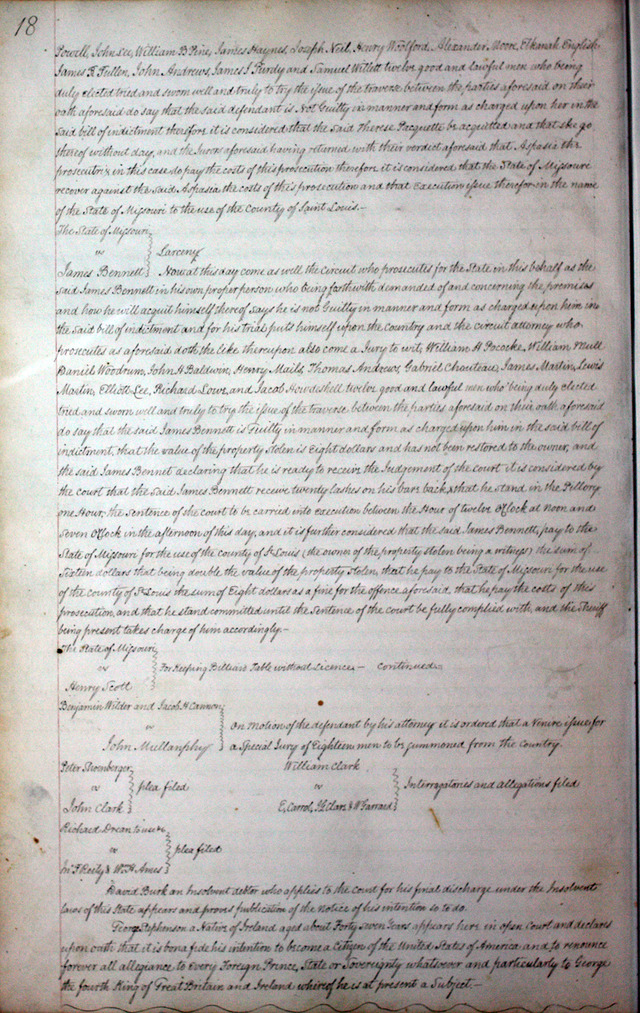 18
Powell, John Lee, William B Pine, James Haynes, Joseph Neil, Henry Woolford, Alexander Moore, Elkanah English,
James R Fullen, John Andrews, James J Purdy and Samuel Willett twelve good and lawful men who being
duly elected tried and sworn well and truly to try the issue of the traverse between the parties aforesaid on their
oath aforesaid do say that the said defendant is Not Guilty in manner and form as charged upon her in the
said bill of indictment therefore it is considered that the said Therese Pecquette be acquitted and that she go
thereof without day, and the Jurors aforesaid having returned with their verdict aforesaid that Aspasia the
prosecutrix in this case do pay the costs of this prosecution therefore it is considered that the State of Missouri
recover against the said Aspasia the costs of this prosecution and that Execution issue therefor in the name
of the State of Missouri to the use of the County of Saint Louis.—
The State of Missouri
vs
Larceny
James Bennett Now at this day come as well the Circuit who prosecutes for the State in this behalf as the
said James Bennett in his own proper person who being forthwith demanded of and concerning the premises
and how he will acquit himself thereof says he is not Guilty in manner and form as charged upon him in
the said bill of indictment and for his trial puts himself upon the Country and the circuit attorney who
prosecutes as aforesaid doth the like thereupon also come a Jury to wit, William H Pococke, William Null
Daniel Woodrum, John H Baldwin, Henry Mails, Thomas Andrews, Gabriel Chouteau, James Martin, Lewis
Martin, Elliott Lee, Richard Lowe, and Jacob Howdeshell twelve good and lawful men who being duly elected
tried and sworn well and truly to try the issue of the traverse between the parties aforesaid on their oath aforesaid
do say that the said James Bennett is Guilty in manner and form as charged upon him in the said bill of
indictment, that the value of the property stolen is Eight dollars and has not been restored to the owner, and
the said James Bennet declaring that he is ready to receive the Judgement of the court it is considered by
the court that the said James Bennett receive twenty lashes on his bare back & that he stand in the Pillory
one Hour, the Sentence of the court to be carried into execution between the Hour of twelve OClock at noon and
Seven OClock in the afternoon of this day, and it is further considered that the said James Bennett, pay to the
State of Missouri for the use of the county of St Louis (the owner of the property stolen being a witness) the sum of
Sixteen dollars that being double the value of the property stolen, that he pay to the State of Missouri for the use
of the county of St Louis the sum of Eight dollars as a fine for the offence aforesaid, that he pay the costs of this
prosecution, and that he stand committed until the Sentence of the court be fully complied with, and the Sheriff
being present takes charge of him accordingly.—
The State of Missouri
vs
For Keeping Billiard Table without Licence.— Continued
Henry Scott
Benjamin Wilder and Jacob H Cannon
vs
On motion of the defendant by his attorney it is ordered that a Venire issue for
John Mullanphy a Special Jury of Eighteen men to be summoned from the Country.
Peter Shoenberger
vs plea filed
John Clark
William Clark
vs Interrogatories and allegations filed
E, Carrol, St Clare & W Farrand
Richard Drean to use &c
vs plea filed
Jno F Reily & Wm H Ames
David Burk an Insolvent debtor who applies to the Court for his final discharge under the Insolvent
laws of this State appears and proves publication of the Notice of his intention so to do.
George Stephenson a Native of Ireland aged about Forty Seven Years appears here in open Court and declares
upon oath that it is bona fide his intention to become a Citizen of the United States of America and to renounce
forever all allegiance to Every Foreign Prince, State or Sovereignty whatsoever and particularly to George
the fourth King of Great Britain and Ireland whereof he is at present a Subject.—